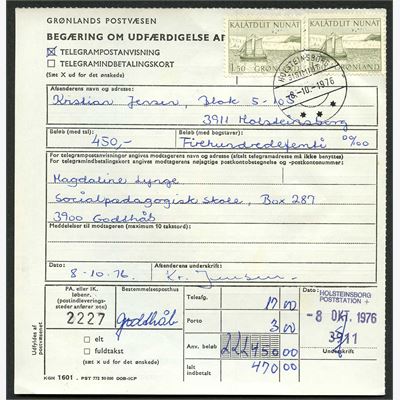 GRØNLANDS POSTVÆSEN
BEGÆRING OM UDFÆRDIGELSE AF
TELEGRAMPOSTANVISNING
TELEGRAMINDBETALINGSKORT
(Sæt X ud for det ønskede)
KALÂTDLIT NUNÂT KALÂTDLIT NUNÂT
1.50 GRØNLAND GRØNLAND
HOLSTEINSBORG
8.-10.-1976
Afsenderens navn og adresse:
Kristian Jensen, Blok 5-103
3911 Holsteinsborg
Beløb (med tal): Beløb (med bogstaver):
450,- Firehundredefemti 00/00
For telegrampostanvisning angives modtagerens navn og adresse (altid telegramadresse må ikke benyttes)
For telegramindbetalingskort angives modtagerens nøjagtige postkontobetegnelse og -postkontonummer:
Magdaline Lynge
Socialpædagogisk Skole, Box 287
3900 Godthåb
Meddelelser til modtageren (maximum 10 tekstord):
Dato: Afsenderens underskrift:
8-10.76 Kr. Jensen
Udfyldes af postvæsenet
PA. eller IK.
løbenr.
(postindleverings-
steder anfører nr.)
2227
Bestemmelsesposthus
Godthåb
elt
fuldtakst
(sæt X ud for det ønskede)
Telesafg. 17 00
Porto 3 00
Anv. beløb 222450 00
Ialt
indbetalt 470 00
Dato:
HOLSTEINSBORG
POSTSTATION +
- 8 OKT. 1976
3911
Underskrift
KGH 1601